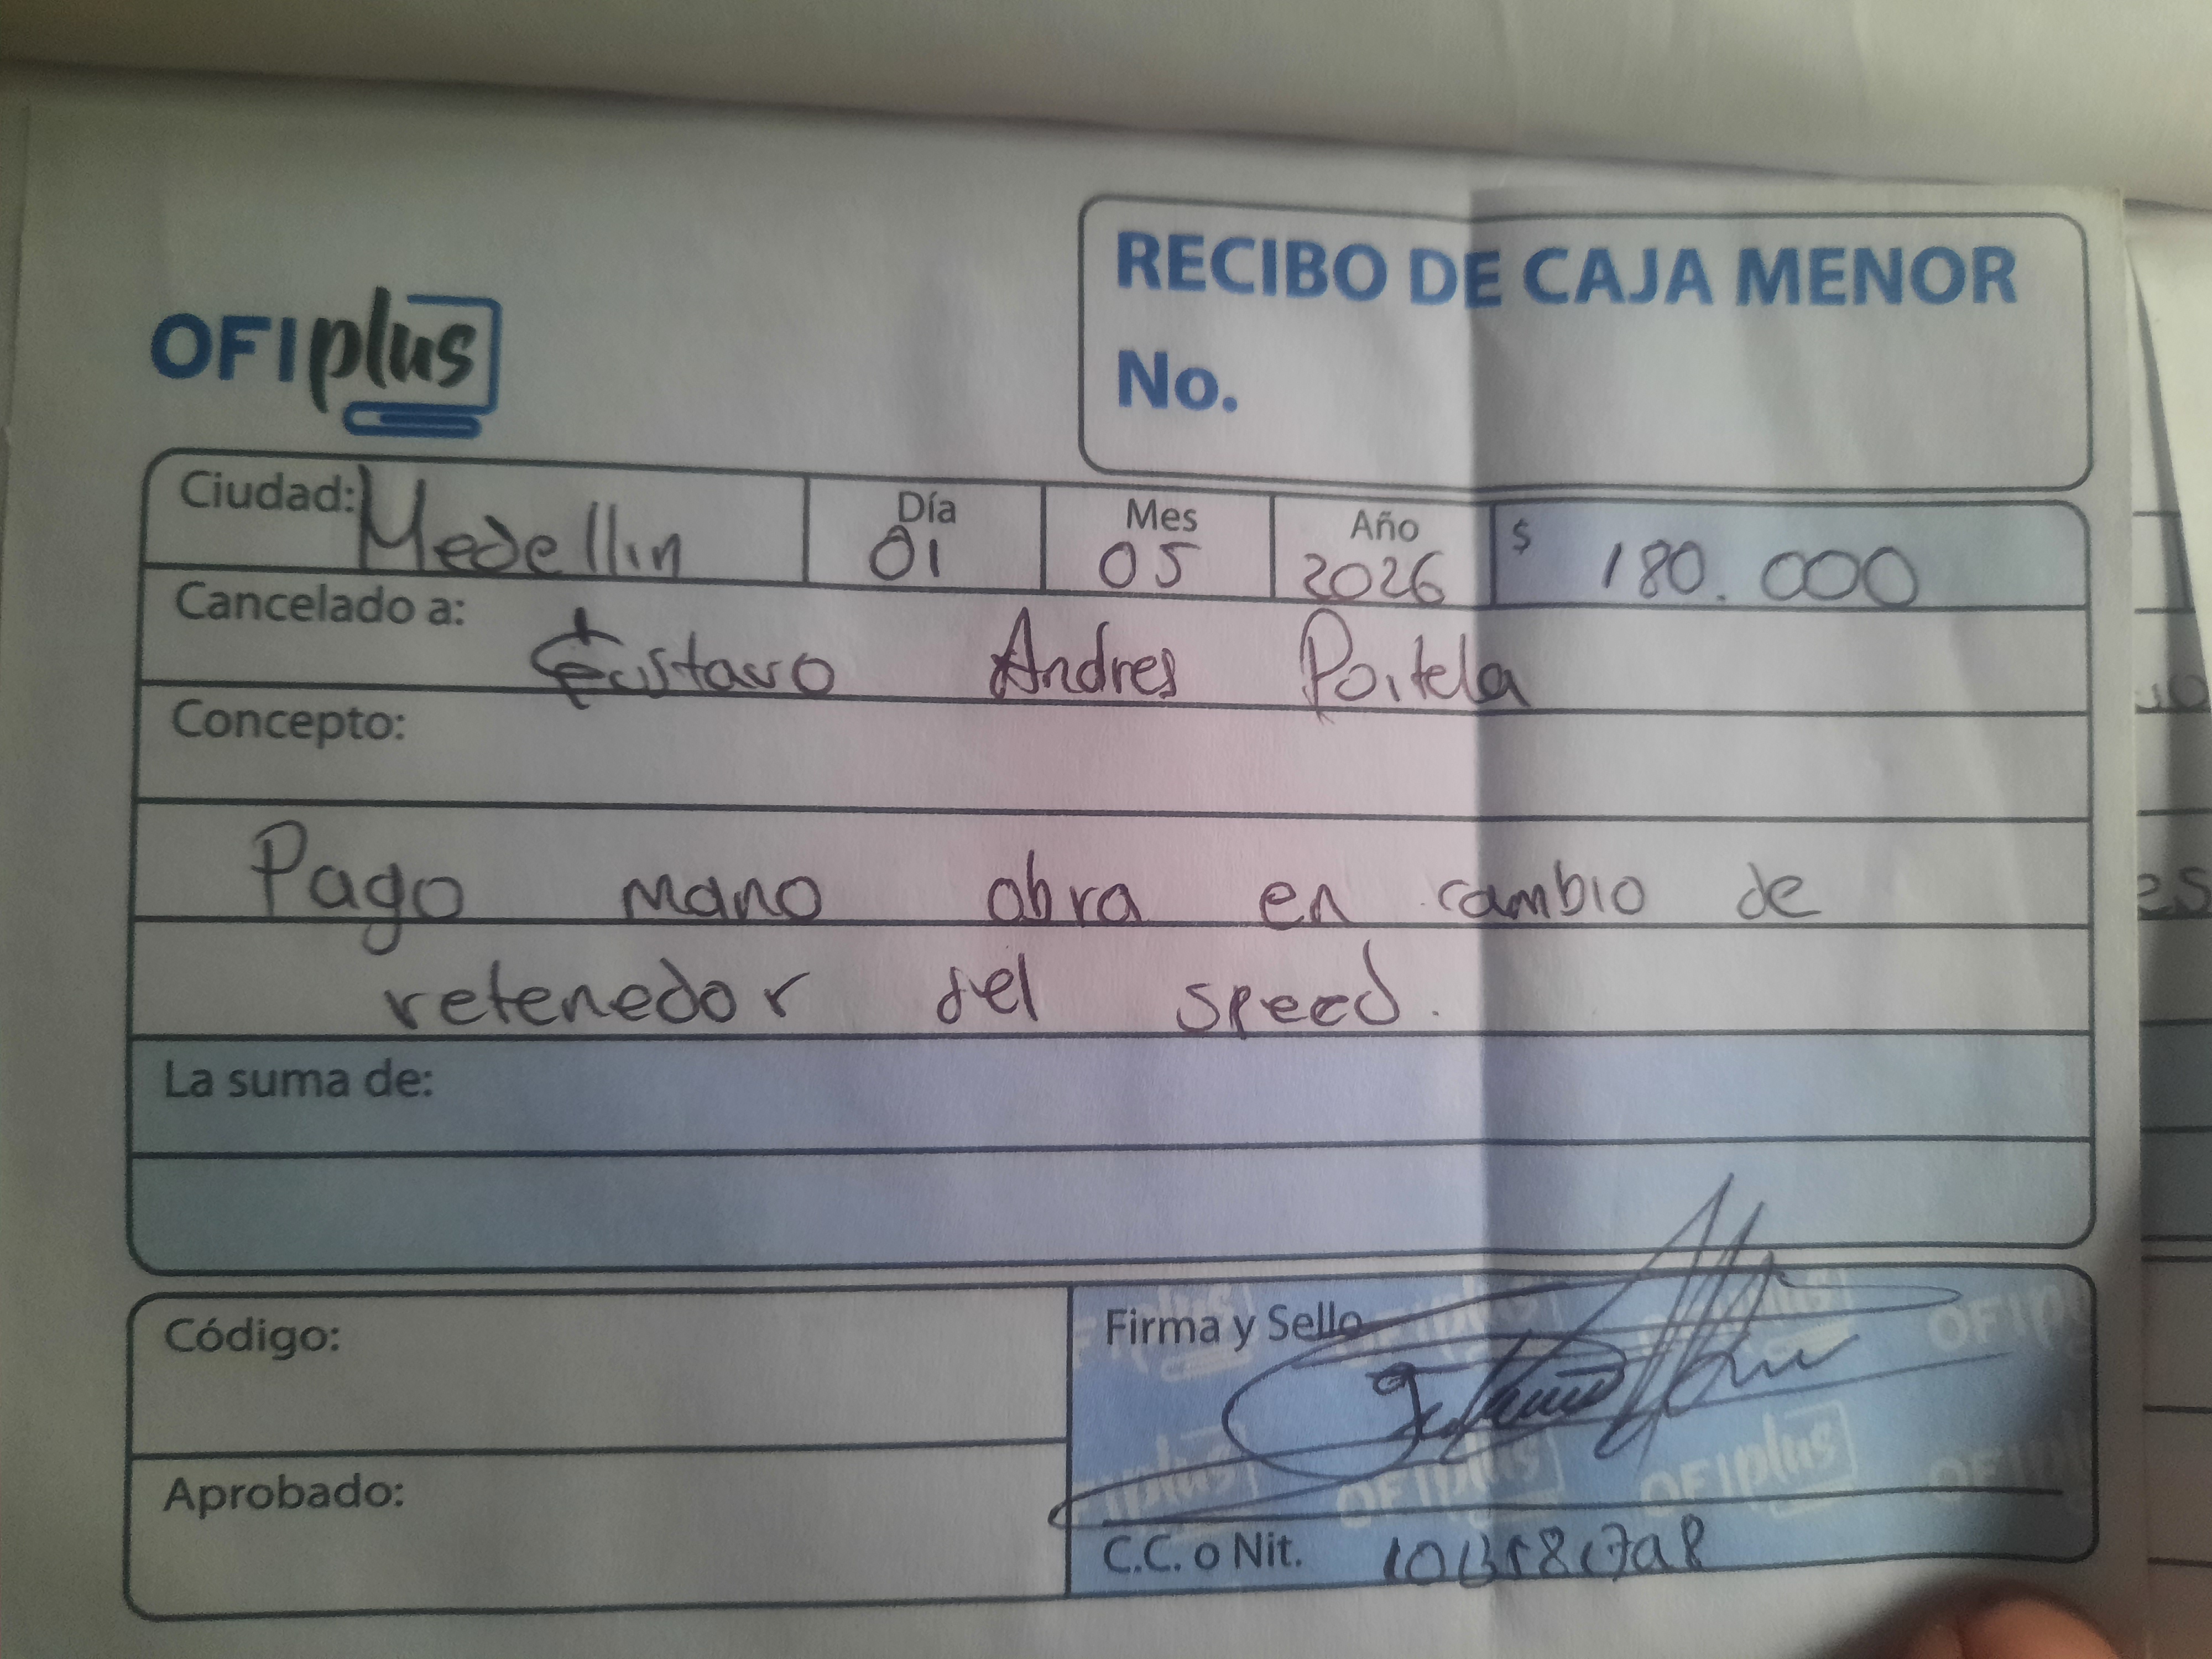 OFIplus
RECIBO DE CAJA MENOR
No.
Ciudad: Medellin
Día 01
Mes 05
Año 2026
$ 180.000
Cancelado a: Gustavo Andres Portela
Concepto:
Pago mano obra en cambio de
retenedor del speed.
La suma de:
Código:
Aprobado:
Firma y Sello
C.C. o Nit.